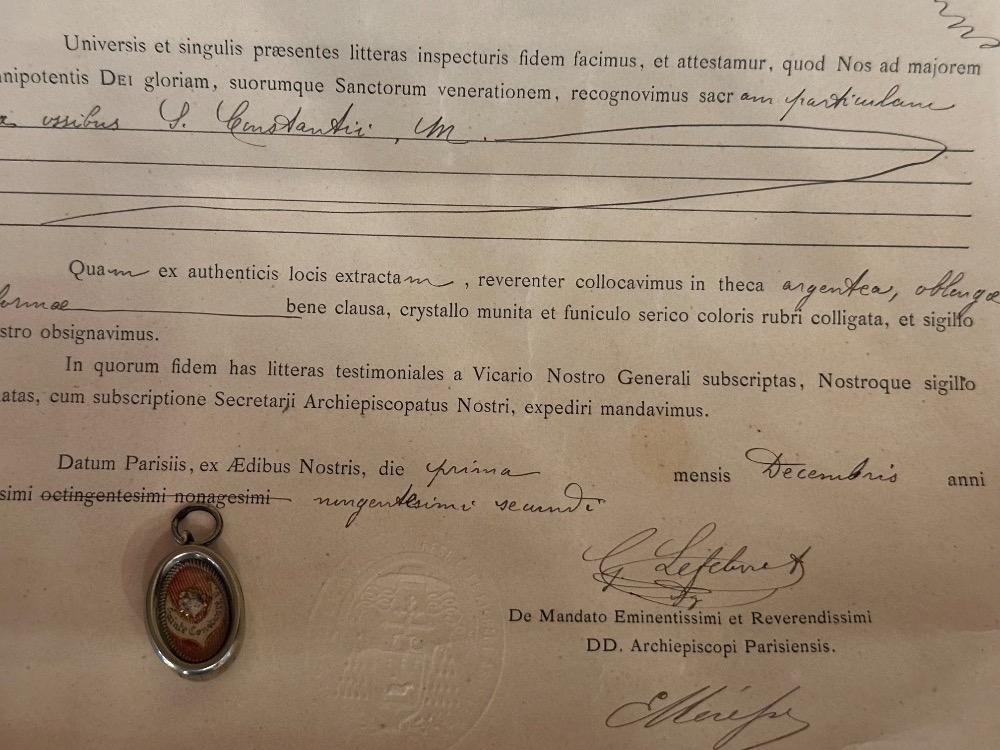 Universis et singulis præsentes litteras inspecturis fidem facimus, et attestamur, quod Nos ad majorem
nipotentis DEI gloriam, suorumque Sanctorum venerationem, recognovimus sacram particulam
ossibus S. Constantii, M.
Quam ex authenticis locis extractam, reverenter collocavimus in theca argentea, oblongæ
formæ bene clausa, crystallo munita et funiculo serico coloris rubri colligata, et sigillo
stro obsignavimus.
In quorum fidem has litteras testimoniales a Vicario Nostro Generali subscriptas, Nostroque sigillo
atas, cum subscriptione Secretarii Archiepiscopatus Nostri, expediri mandavimus.
Datum Parisiis, ex Ædibus Nostris, die prima mensis Decembris anni
simi octingentesimi nonagesimi nongentesimi secundi
G. Lefebvre
De Mandato Eminentissimi et Reverendissimi
DD. Archiepiscopi Parisiensis.